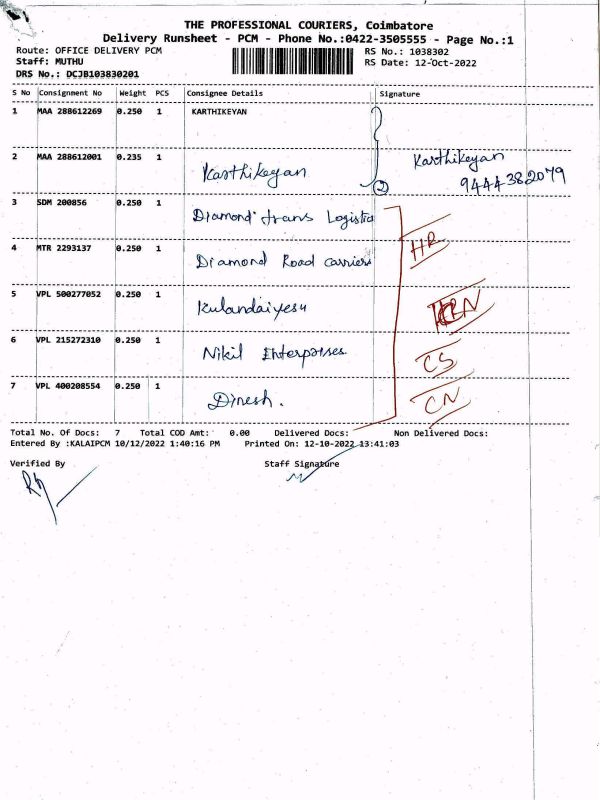 THE PROFESSIONAL COURIERS, Coimbatore
Delivery Runsheet - PCM - Phone No.:0422-3505555 - Page No.:1
Route: OFFICE DELIVERY PCM RS No.: 1038302
Staff: MUTHU RS Date: 12-Oct-2022
DRS No.: DCJB103830201
S No Consignment No Weight PCS Consignee Details Signature
1 MAA 288612269 0.250 1 KARTHIKEYAN
2 MAA 288612001 0.235 1 Karthikeyan Karthikeyan
2 9444382079
3 SDM 200856 0.250 1 Diamond trans Logistic
HR
4 MTR 2293137 0.250 1 Diamond Road carriers
5 VPL 500277052 0.250 1 Kulandaiyesu
6 VPL 215272310 0.250 1 Nikil Enterprises
CS
7 VPL 400208554 0.250 1 Dinesh.
CN
Total No. Of Docs: 7 Total COD Amt: 0.00 Delivered Docs: Non Delivered Docs:
Entered By :KALAIPCM 10/12/2022 1:40:16 PM Printed On: 12-10-2022 13:41:03
Verified By Staff Signature